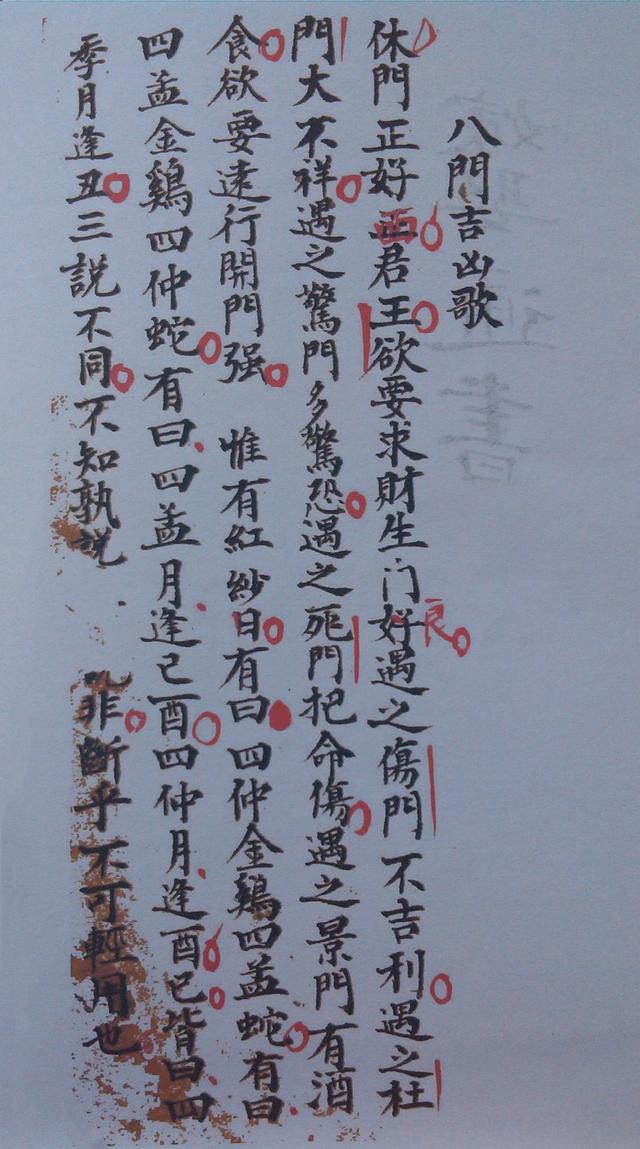 八門吉凶歌
休門正好面君王欲要求財生门好良遇之傷門不吉利遇之杜
門大不祥遇之驚門多驚恐遇之死門把命傷遇之景門有酒
食欲要遠行開門强 惟有紅紗日有曰四仲金鷄四孟蛇有曰
四孟金鷄四仲蛇有曰四孟月逢巳酉四仲月逢酉巳皆曰四
季月逢丑三説不同不知孰説 非斷乎不可輕用也